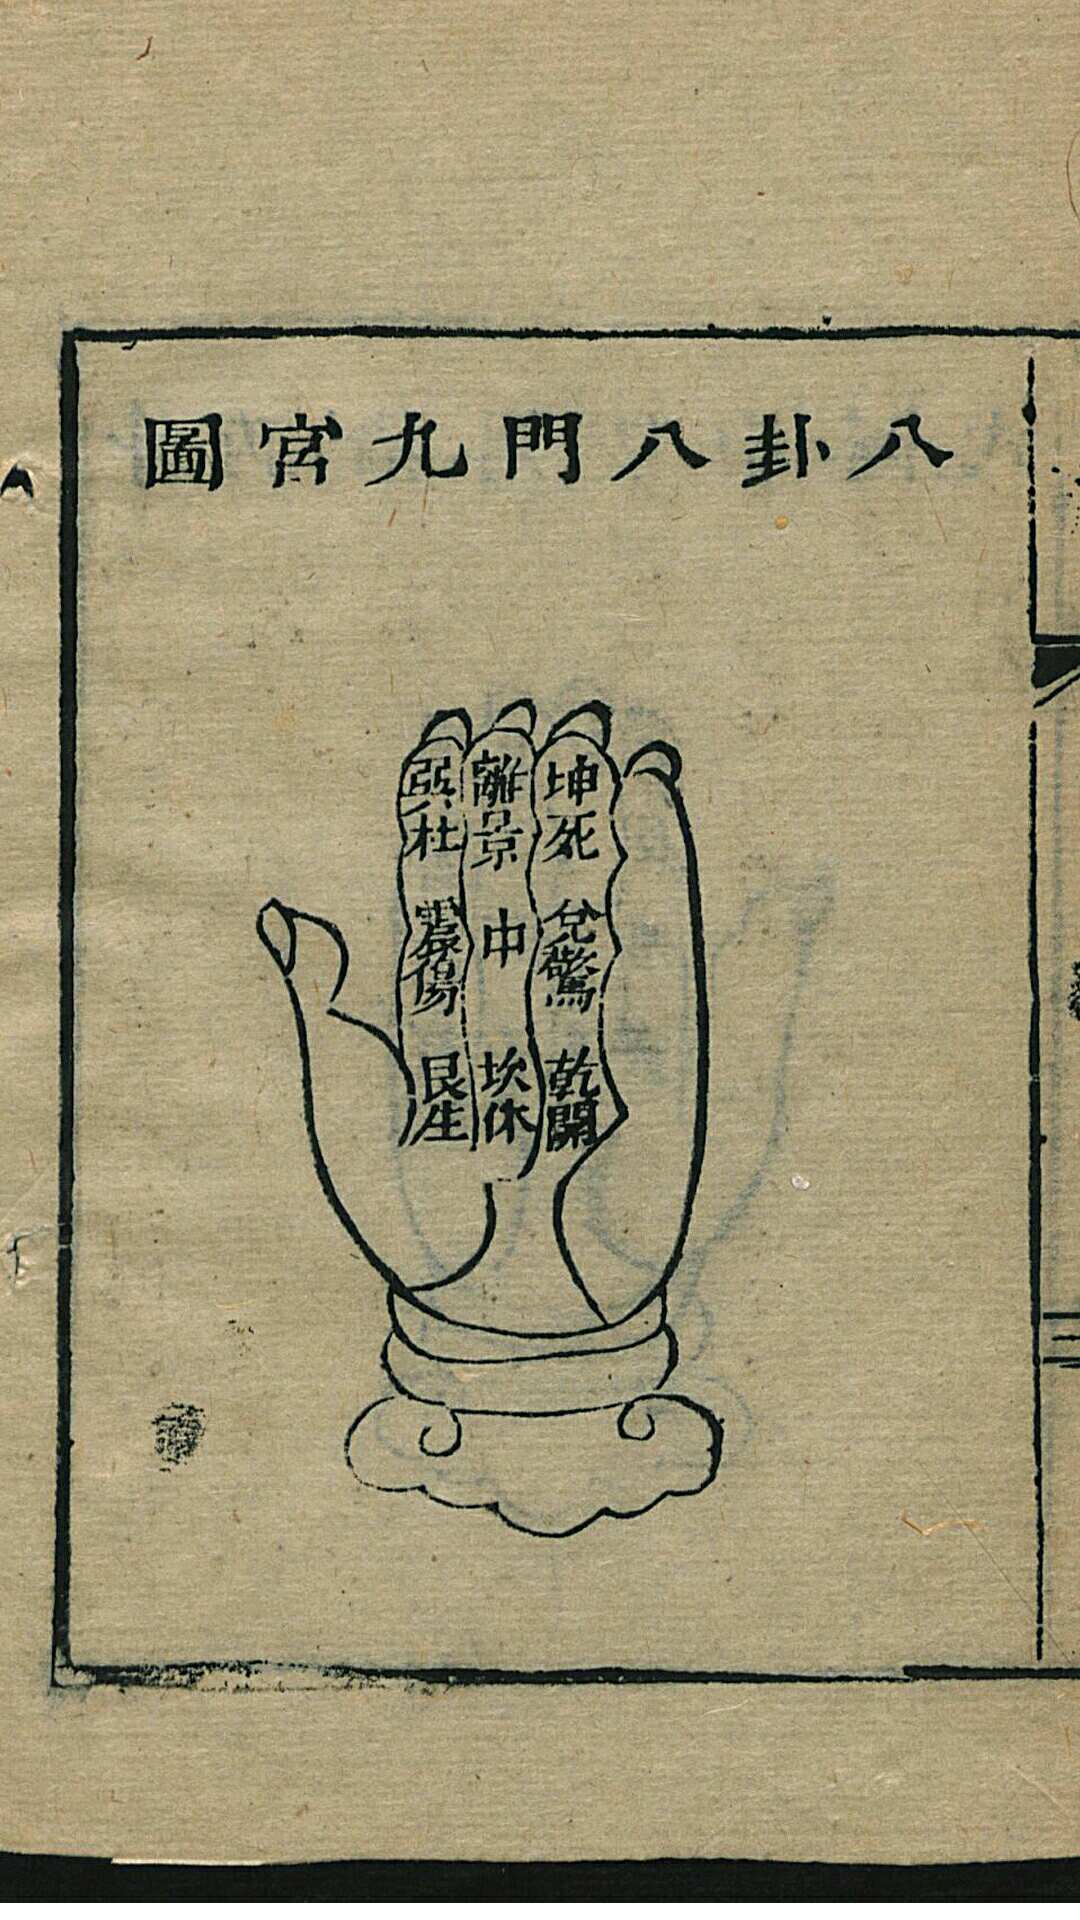 八卦八門九宮圖
坤死
兌驚
乾開
離景
中
坎休
巽杜
震傷
艮生